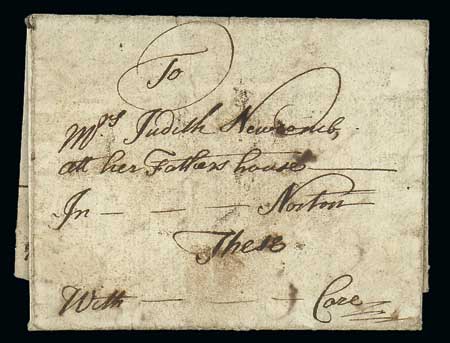 To
Mrs Judith Newcomb,
att her Fathers house
In - - - Norton
These
With - - - Care